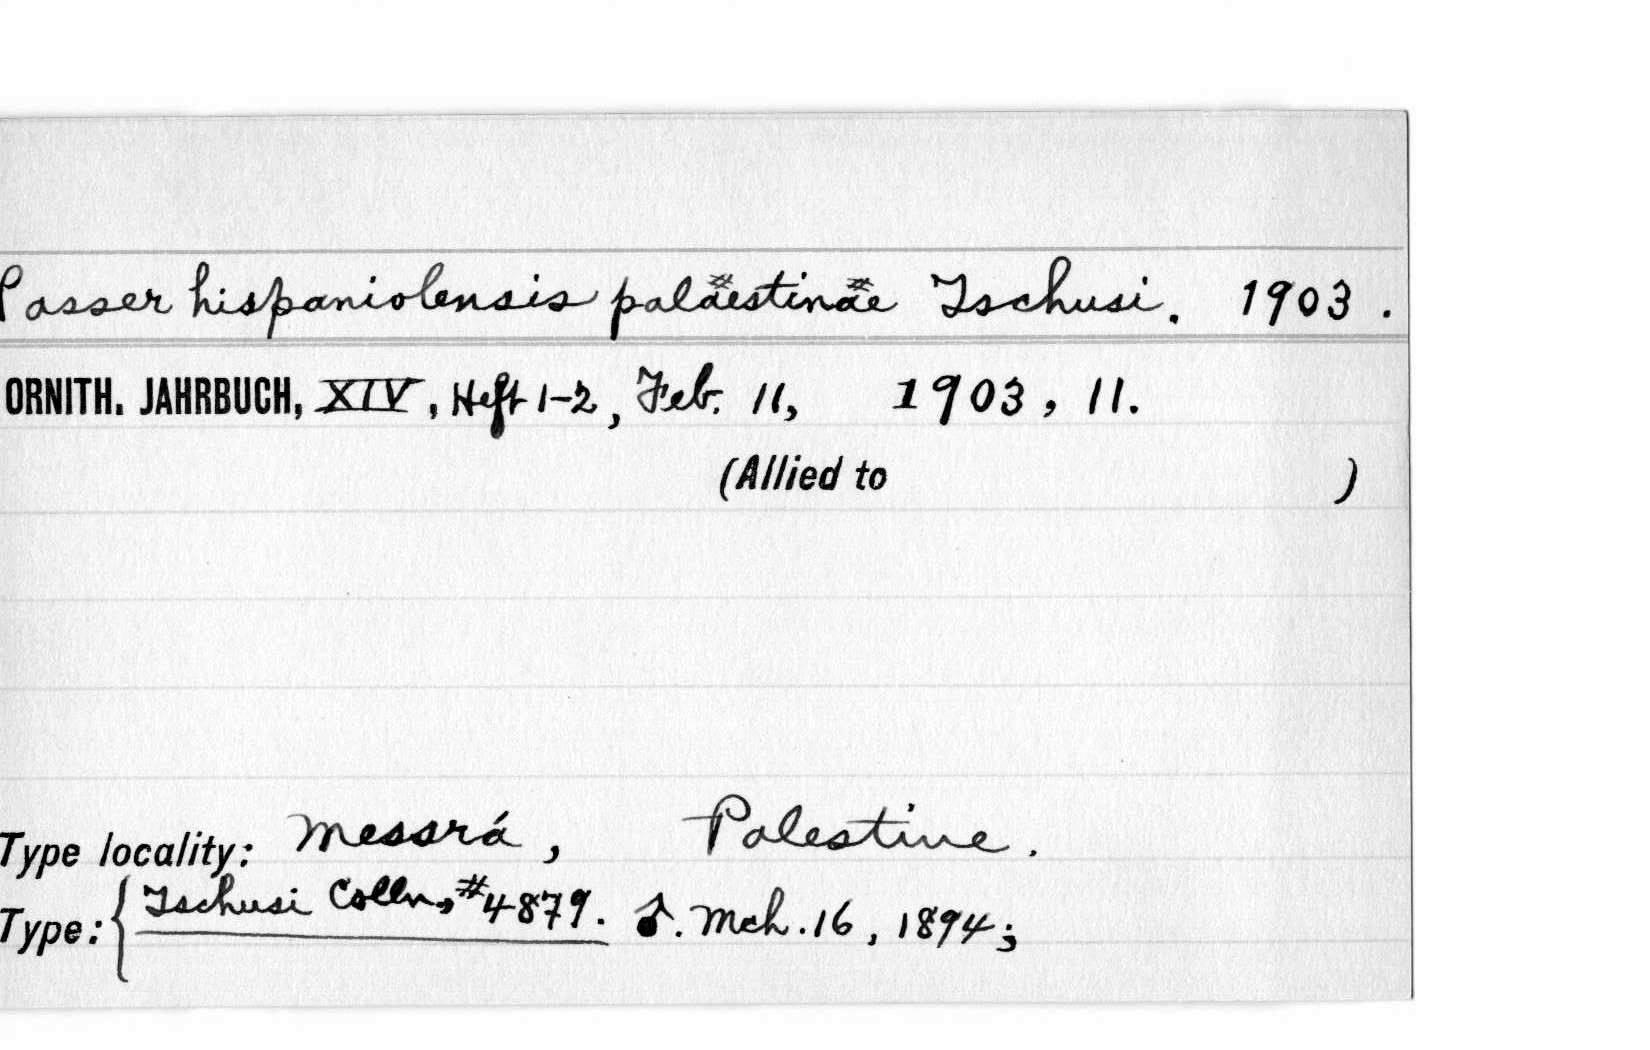 Passer hispaniolensis palaestinae Tschusi. 1903.
ORNITH. JAHRBUCH, XIV, Heft 1-2, Feb. 11, 1903, 11.
(Allied to )
Type locality: Messrá, Palestine.
Type: { Tschusi Colln, #4879. ♂. Mch. 16, 1894;